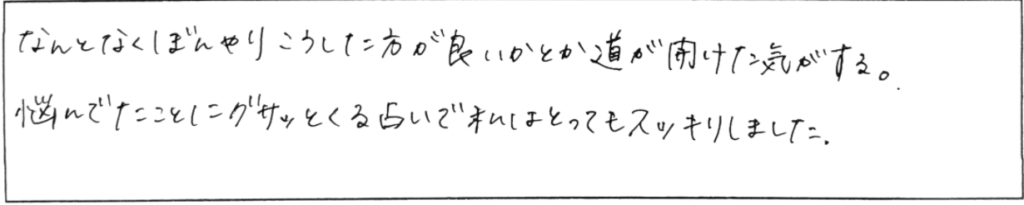 なんとなくぼんやりこうした方が良いかとか道が開けた気がする。
悩んでたことにグサッとくる占いで私はとってもスッキリしました.